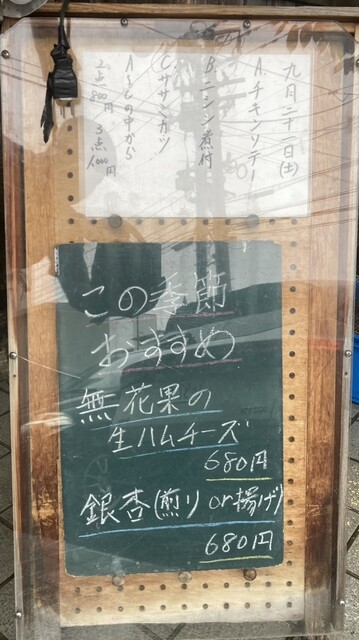 九月二十一日(土)
A チキンソテー
B ニシン煮付
C ササミカツ
A〜Cの中から
2点800円 3点1000円
この季節
おすすめ
無花果の
生ハムチーズ
680円
銀杏(煎り or 揚げ)
680円